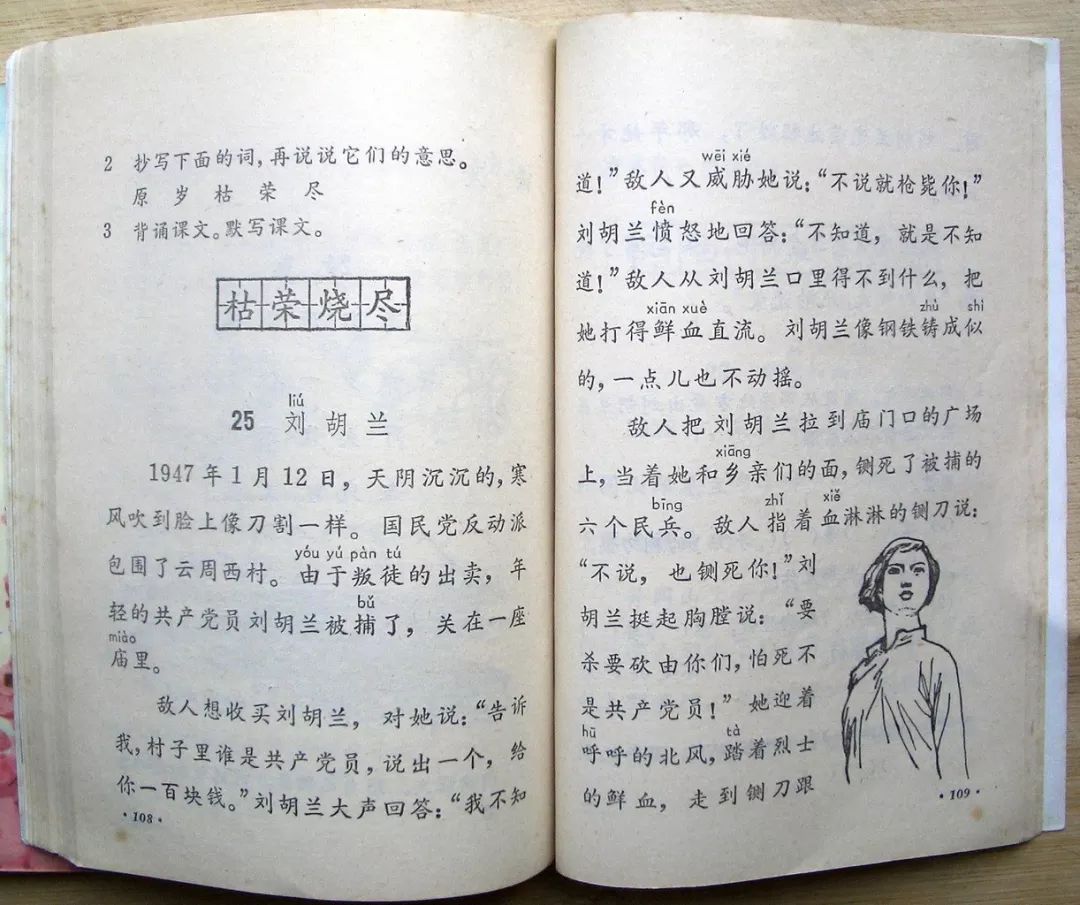 2 抄写下面的词，再说说它们的意思。
原 岁 枯 荣 尽
3 背诵课文。默写课文。
枯荣烧尽
liú
25 刘胡兰
1947年1月12日，天阴沉沉的，寒
风吹到脸上像刀割一样。国民党反动派
yóu yú pàn tú
包围了云周西村。由于叛徒的出卖，年
bǔ
轻的共产党员刘胡兰被捕了，关在一座
miào
庙里。
敌人想收买刘胡兰，对她说：“告诉
我，村子里谁是共产党员，说出一个，给
你一百块钱。”刘胡兰大声回答：“我不知
·108·
wēi xié
道！”敌人又威胁她说：“不说就枪毙你！”
fèn
刘胡兰愤怒地回答：“不知道，就是不知
道！”敌人从刘胡兰口里得不到什么，把
xiān xuè zhù shì
她打得鲜血直流。刘胡兰像钢铁铸成似
的，一点儿也不动摇。
敌人把刘胡兰拉到庙门口的广场
xiāng
上，当着她和乡亲们的面，铡死了被捕的
bīng zhǐ xiě
六个民兵。敌人指着血淋淋的铡刀说：
“不说，也铡死你！”刘
胡兰挺起胸膛说：“要
杀要砍由你们，怕死不
是共产党员！”她迎着
hū tà
呼呼的北风，踏着烈士
的鲜血，走到铡刀跟
·109·